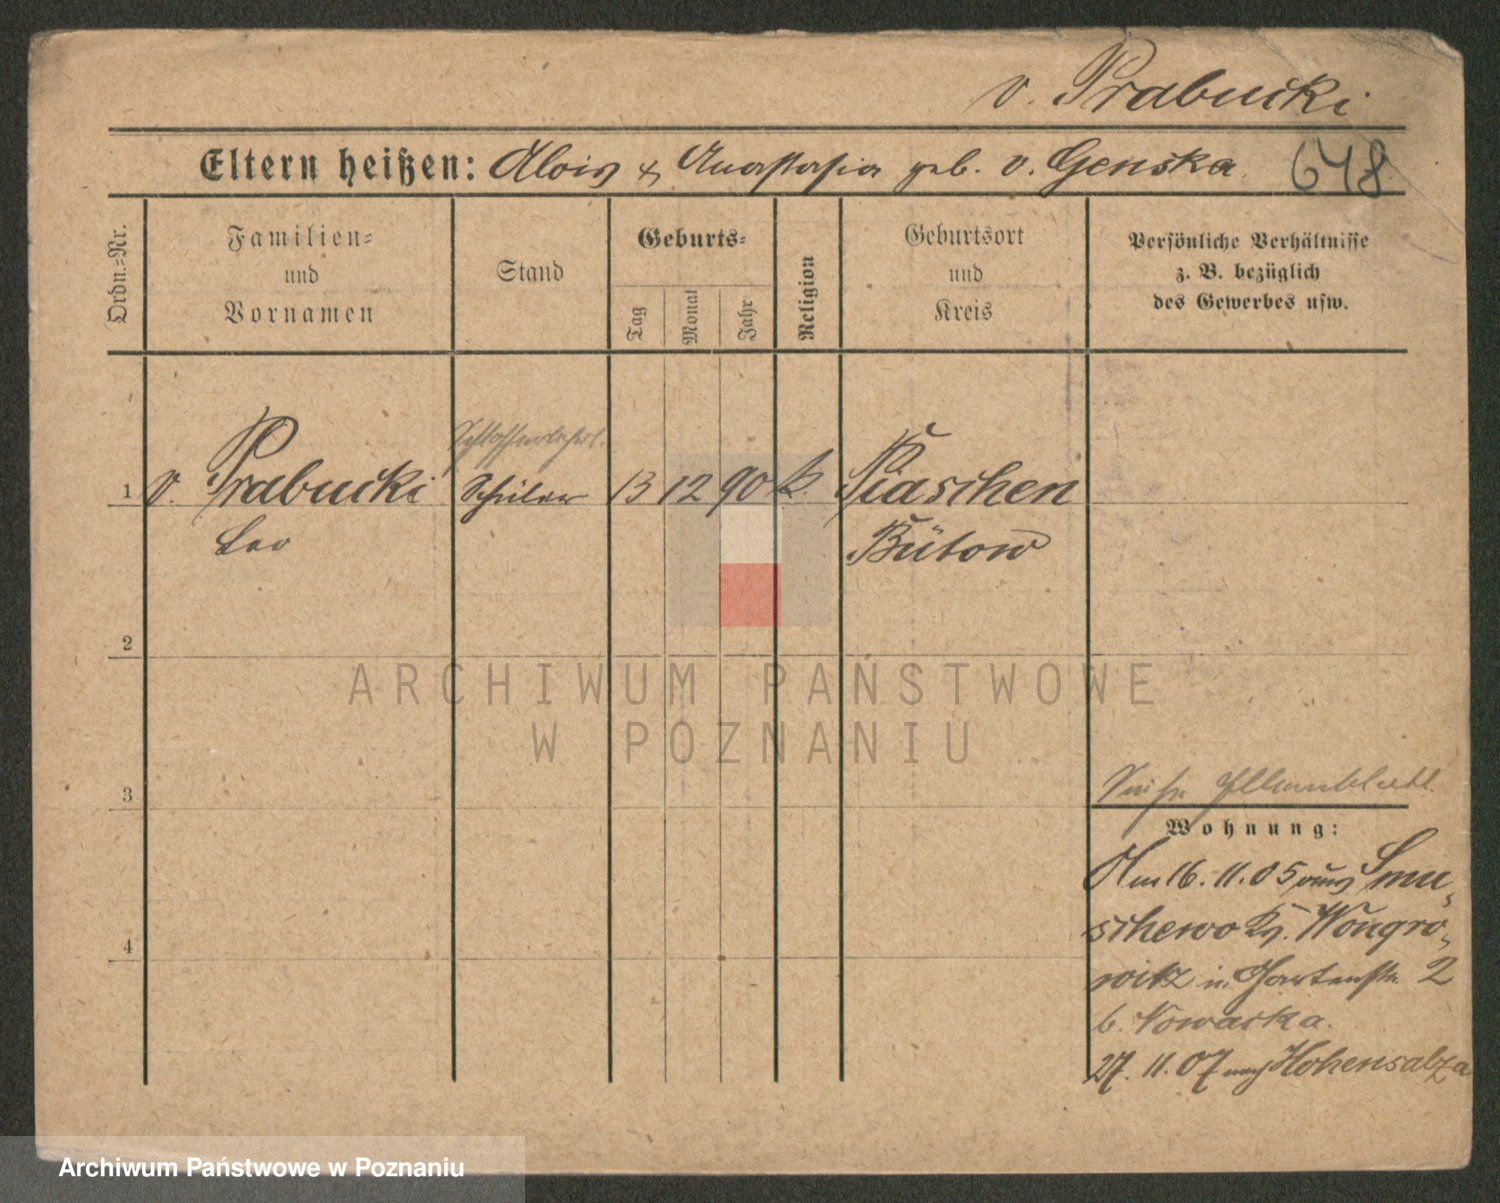 v. Prabucki
Eltern heißen: Alois & Anastasia geb. v. Genska 648
Ordn.-Nr.
Familien-
und
Vornamen
Stand
Geburts-
Tag
Monat
Jahr
Religion
Geburtsort
und
Kreis
Persönliche Verhältnisse
z. B. bezüglich
des Gewerbes usw.
Schlosserlehrl.
1 v. Prabucki Schüler 13 12 90 k. Piaschen
Leo Bütow
2
3
4
Wohnung:
Am 16. 11. 05 aus Smu-
schewo Kr. Wongro-
witz n. Gartenstr. 2
b. Nowacka.
27. 11. 07 nach Hohensalza
ARCHIWUM PAŃSTWOWE
W POZNANIU
Archiwum Państwowe w Poznaniu